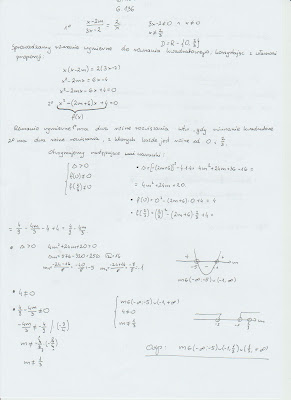 6.136
1° (x-2m)/(3x-2) = 2/x    3x-2≠0 ∧ x≠0
x≠2/3
D=R-{0, 2/3}
Sprowadzamy równanie wymierne do równania kwadratowego, korzystając z własności
proporcji:
x(x-2m) = 2(3x-2)
x²-2mx = 6x-4
x²-2mx-6x+4=0
2° x²-(2m+6)x+4=0
f(x)
Równanie wymierne 1° ma dwa różne rozwiązania wtedy, gdy równanie kwadratowe
2° ma dwa różne rozwiązania, z których żadne jest równe ani 0 i 2/3.
Otrzymujemy następujące warunki:
Δ>0
f(0)≠0
f(2/3)≠0
• Δ=[-(2m+6)]²-4·1·4= 4m²+24m+36-16=
= 4m²+24m+20
• f(0)= 0²-(2m+6)·0+4 = 4
• f(2/3)=(2/3)²-(2m+6)·2/3+4=
= 4/9 - 4m/3 - 4+4 = 4/9 - 4/3m
• Δ>0    4m²+24m+20>0
• 4≠0
• 4/9 - 4m/3 ≠0
-4m/3 ≠ -4/9 /·(-3/4)
m≠ -4/9·(-3/4)
m≠ 1/3
m∈(-∞,-5)∪(-1,∞)
4≠0
m≠1/3
Odp: m∈(-∞,-5)∪(-1,1/3)∪(1/3,+∞)